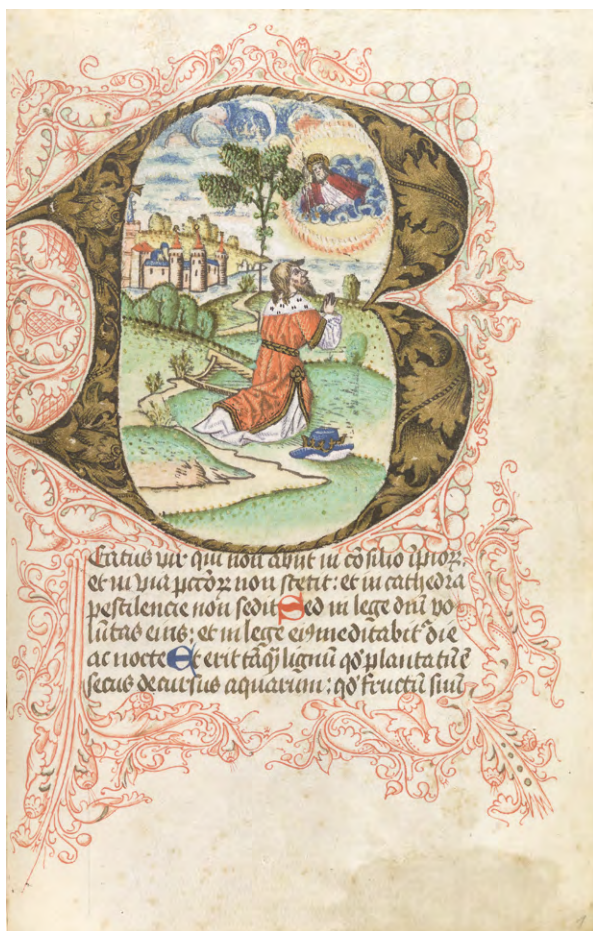 B
Eatus vir qui non abiit in cōsilio īpioꝝ,
et in via pccōꝝ non stetit: et in cathedra
pestilencie non sedit Sed in lege dn̄i vo
lūtas eius; et in lege eiꝰ meditabit᷑ die
ac nocte Et erit tāqꝫ lignū qd̓ plantatū ē
secus decursus aquarum; qd̓ fructū suū
1